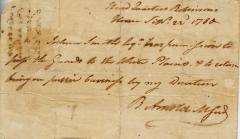 Head Quarters Robinsons
House Sepr. 22d 1780
Joshua Smith Esqr. has permission to
pass the Guards to the White Plains & to return
being on public business by my Direction
B Arnold M Genl